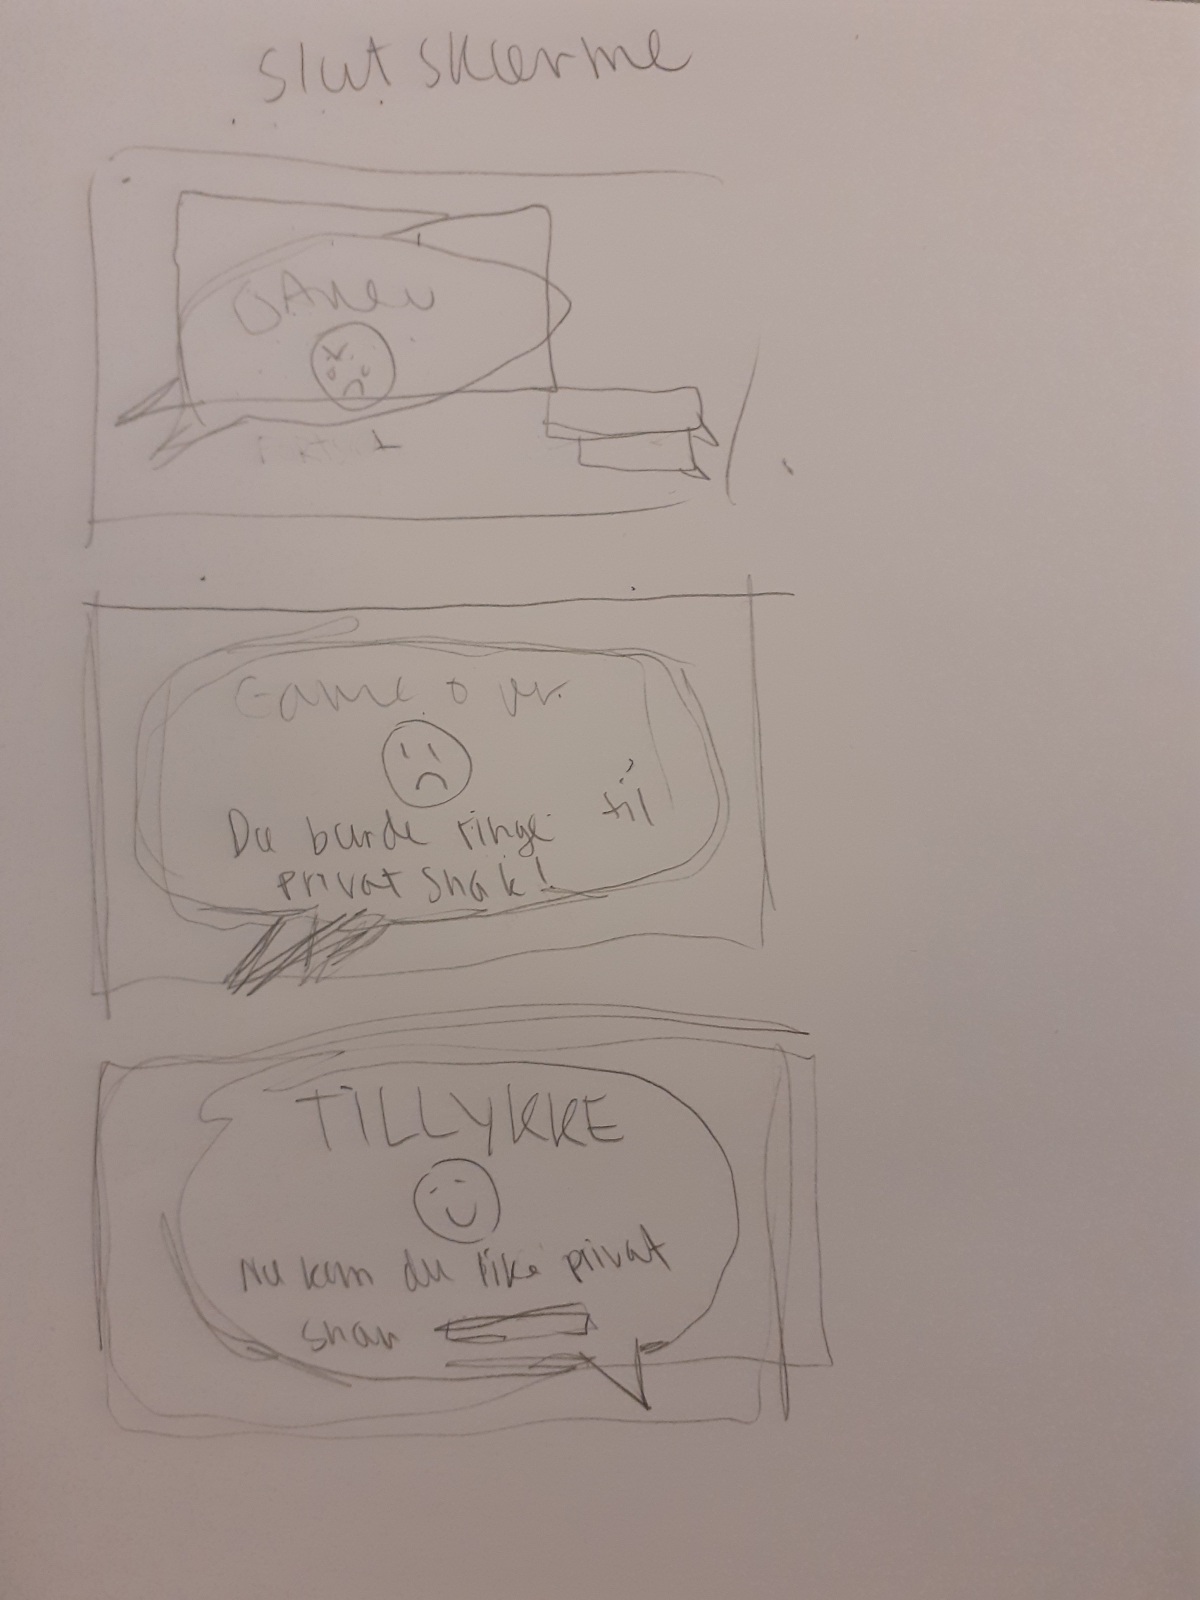 Slut skærme
Game over
Du burde ringe til
privat snak!
TILLYKKE
Nu kan du like privat
snak